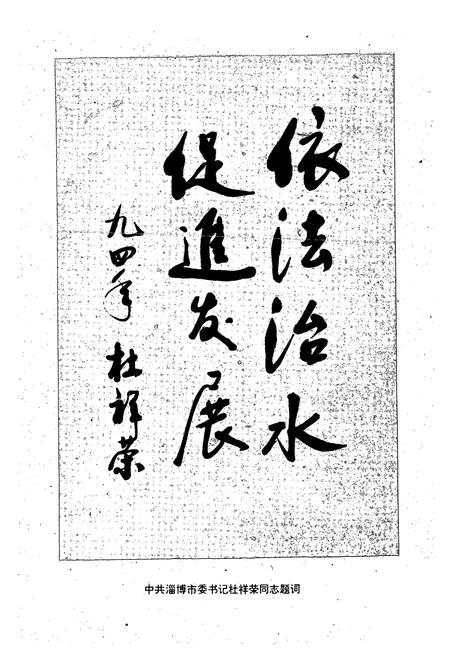 依法治水
促進发展
九四年 杜祥荣
中共淄博市委书记杜祥荣同志题词